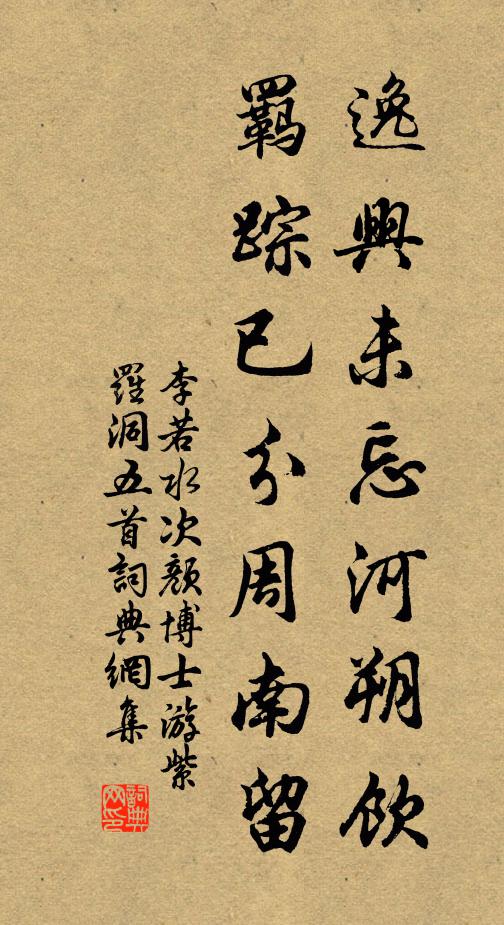 逸興未忘河朔飲
羈踪已分周南留
李若水次顏博士游紫
羅洞五首詞典網集
詞典
网印